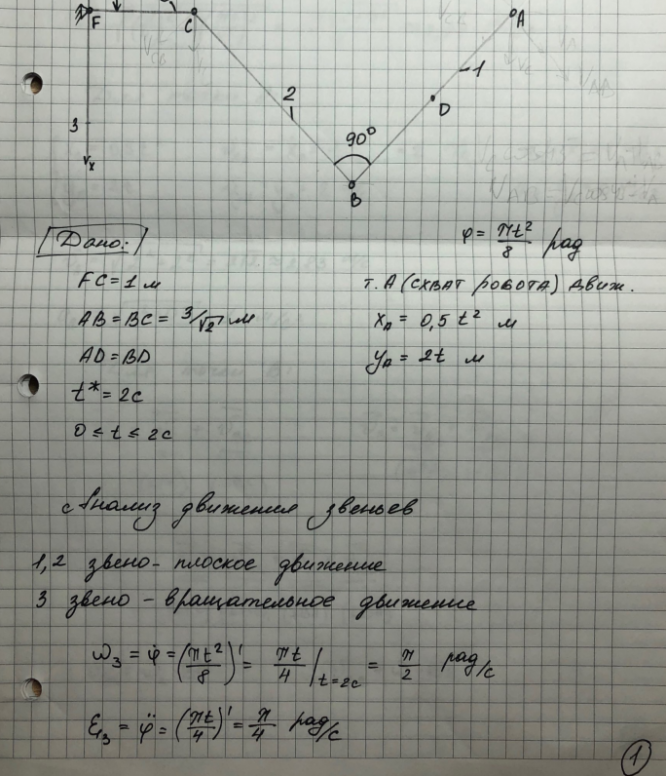 F
C
A
1
2
D
3
90°
B
Дано:
φ = πt²/8 рад
FC = 1 м
т. А (СХВАТ РОБОТА) движ.
AB = BC = 3/√2 м
x_A = 0,5 t² м
AD = BD
y_A = 2t м
t* = 2c
0 ≤ t ≤ 2c
Анализ движения звеньев
1,2 звено - плоское движение
3 звено - вращательное движение
ω₃ = φ̇ = (πt²/8)' = πt/4 |t=2c = π/2 рад/с
ε₃ = φ̈ = (πt/4)' = π/4 рад/с
1